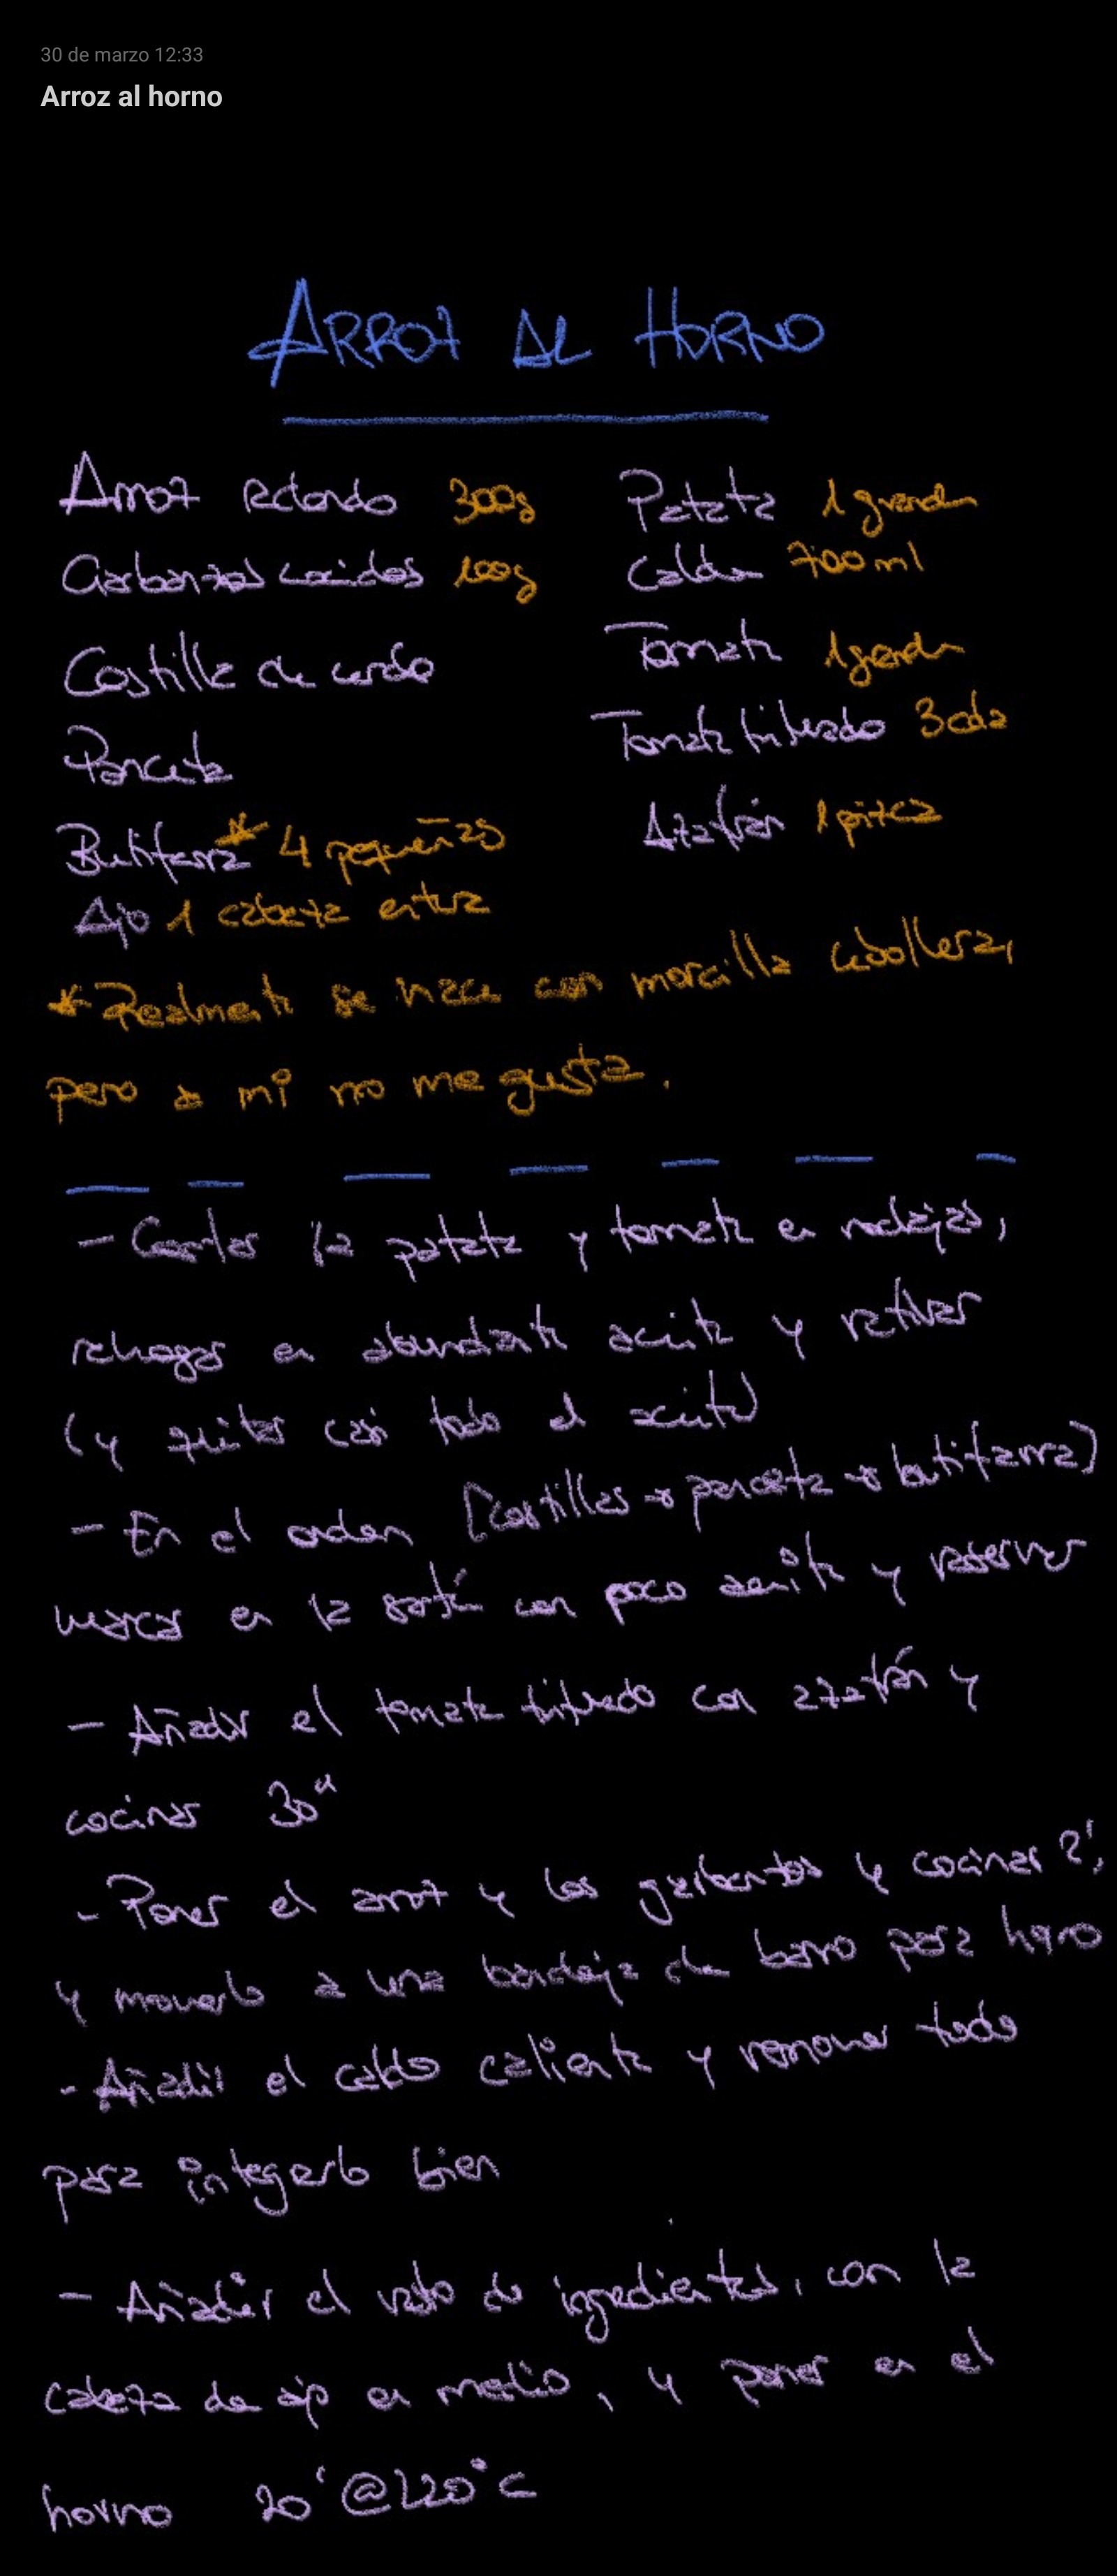 30 de marzo 12:33
Arroz al horno
ARROZ AL HORNO
Arroz Redondo 300g
Garbanzos cocidos 100g
Costilla de cerdo
Panceta
Butifarra* 4 pequeñas
Ajo 1 cabeza entera
Patata 1 grande
Caldo 700ml
Tomate 1 grande
Tomate triturado 3cda
Azafrán 1 pizca
*Realmente se hace con morcilla cebollera,
pero a mi no me gusta.
- Cortar la patata y tomate en rodajas,
rehogar en abundante aceite y retirar
(y quitar casi todo el aceite)
- En el orden [costillas → panceta → butifarra)
marcar en la sartén con poco aceite y reservar
- Añadir el tomate triturado con azafrán y
cocinar 30"
- Poner el arroz y los garbanzos y cocinar 2',
y moverlo a una bandeja de barro para horno
- Añadir el caldo caliente y remover todo
para integrarlo bien
- Añadir el resto de ingredientes, con la
cabeza de ajo en medio, y poner en el
horno 20' @220°C